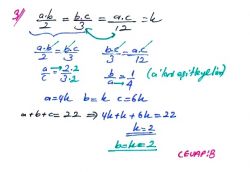 3) a.b/2 = b.c/3 = a.c/12 = k
a.b/2 = b.c/3   b.c/3 = a.c/12
a/c = 2.2/3.2   b/a = 1/4 (a'ları eşitleyelim)
a=4k b=k c=6k
a+b+c=22 ⇒ 4k+k+6k=22
k=2
b=k=2
CEVAP:B